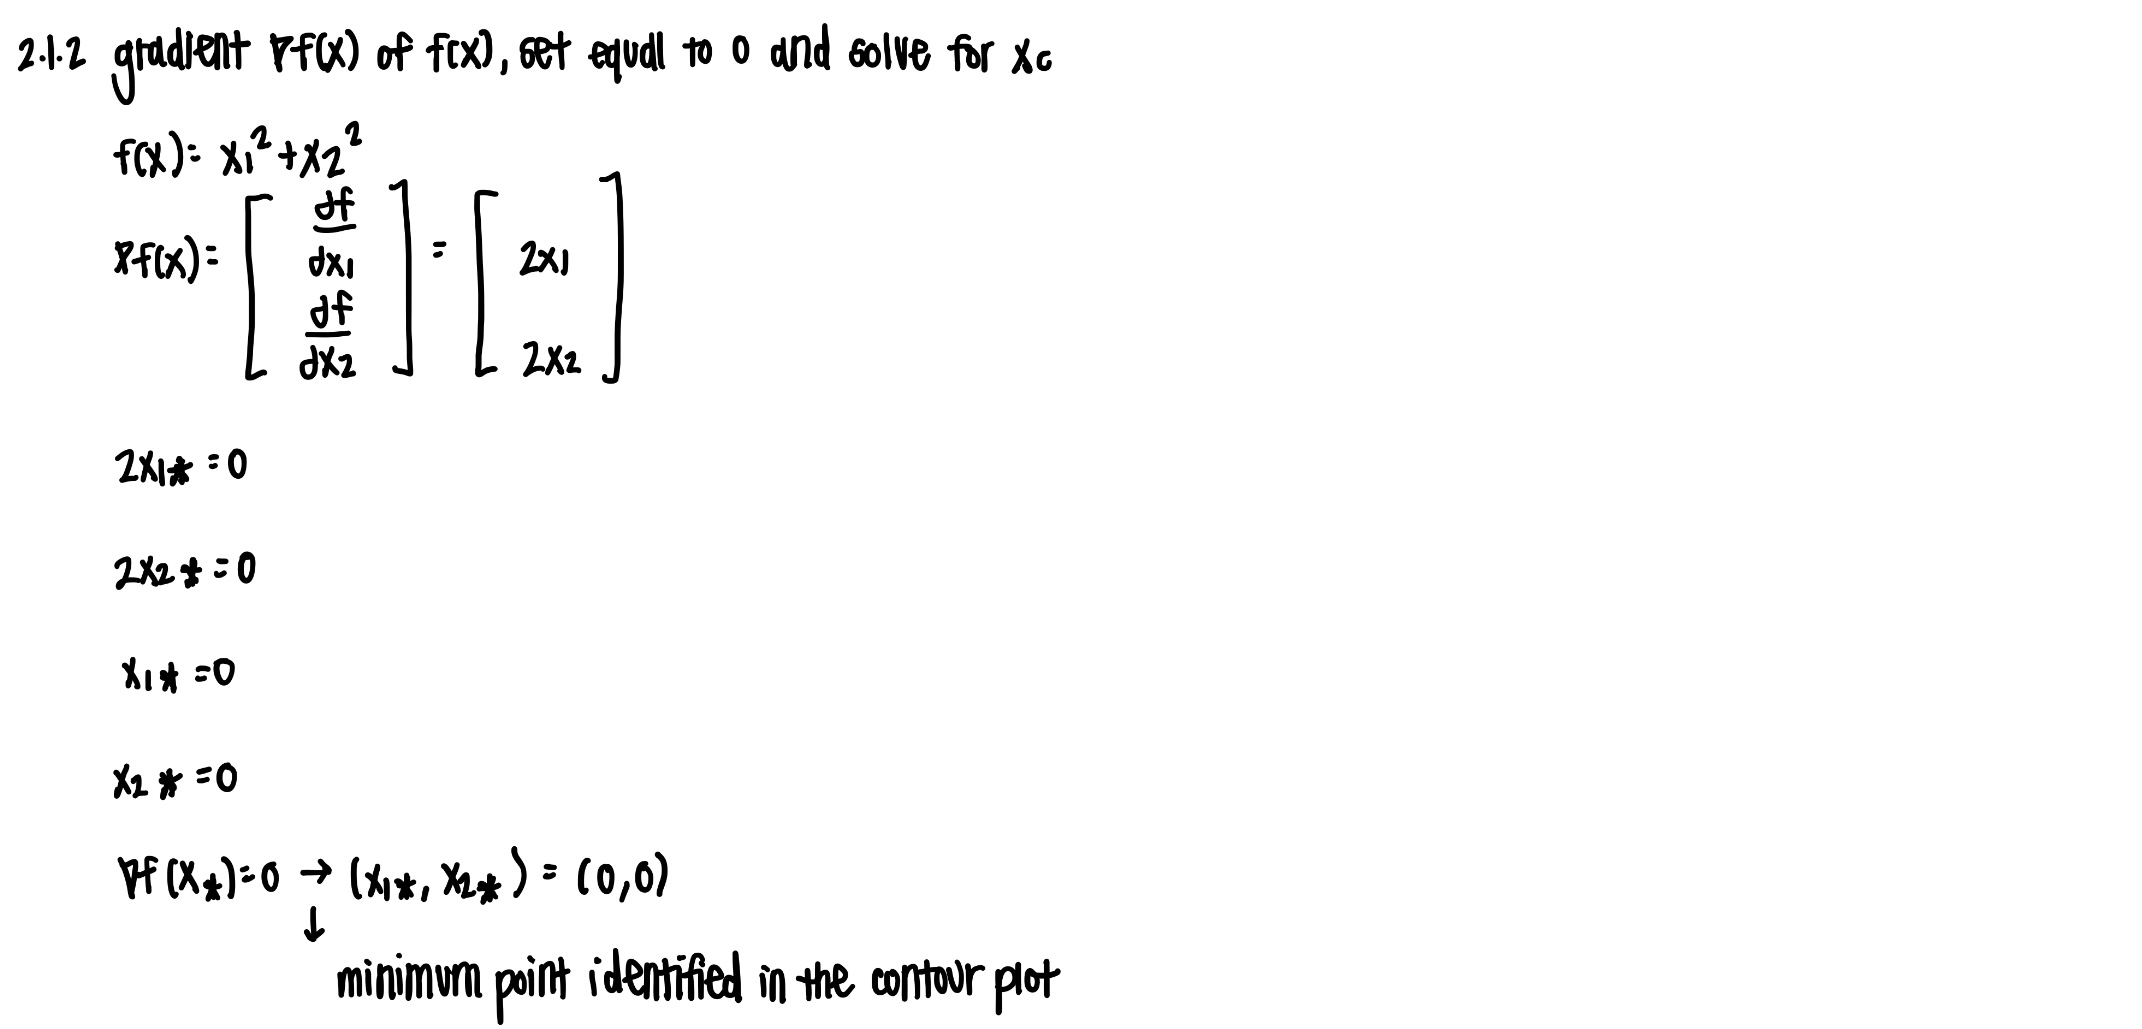 2.1.2 gradient ∇f(x) of f(x), set equal to 0 and solve for xc
f(x) = x1² + x2²
∇f(x) = [ df/dx1 df/dx2 ] = [ 2x1 2x2 ]
2x1* = 0
2x2* = 0
x1* = 0
x2* = 0
∇f(x*) = 0 → (x1*, x2*) = (0,0)
↓
minimum point identified in the contour plot